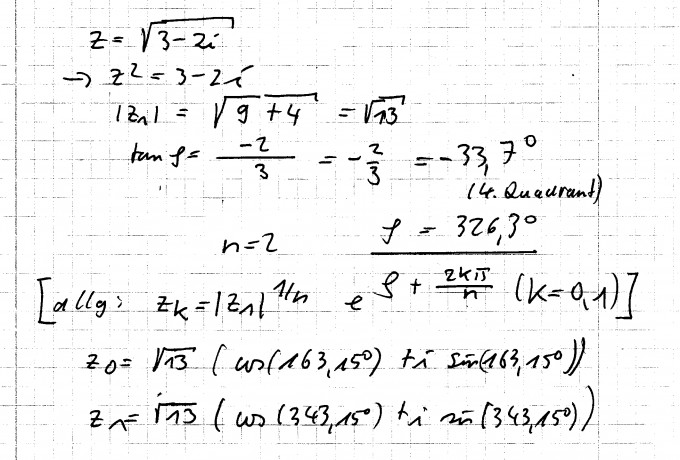 z = √(3-2i)
→ z² = 3-2i
|z₁| = √(9+4) = √13
tan φ = -2/3 = -2/3 = -33,7°
(4. Quadrant)
n=2 φ = 326,3°
[allg: z_K = |z₁|^(1/n) e^(φ + 2kπ/n) (K=0,1)]
z₀ = √13 (cos(163,15°) + i sin(163,15°))
z₁ = √13 (cos(343,15°) + i sin(343,15°))